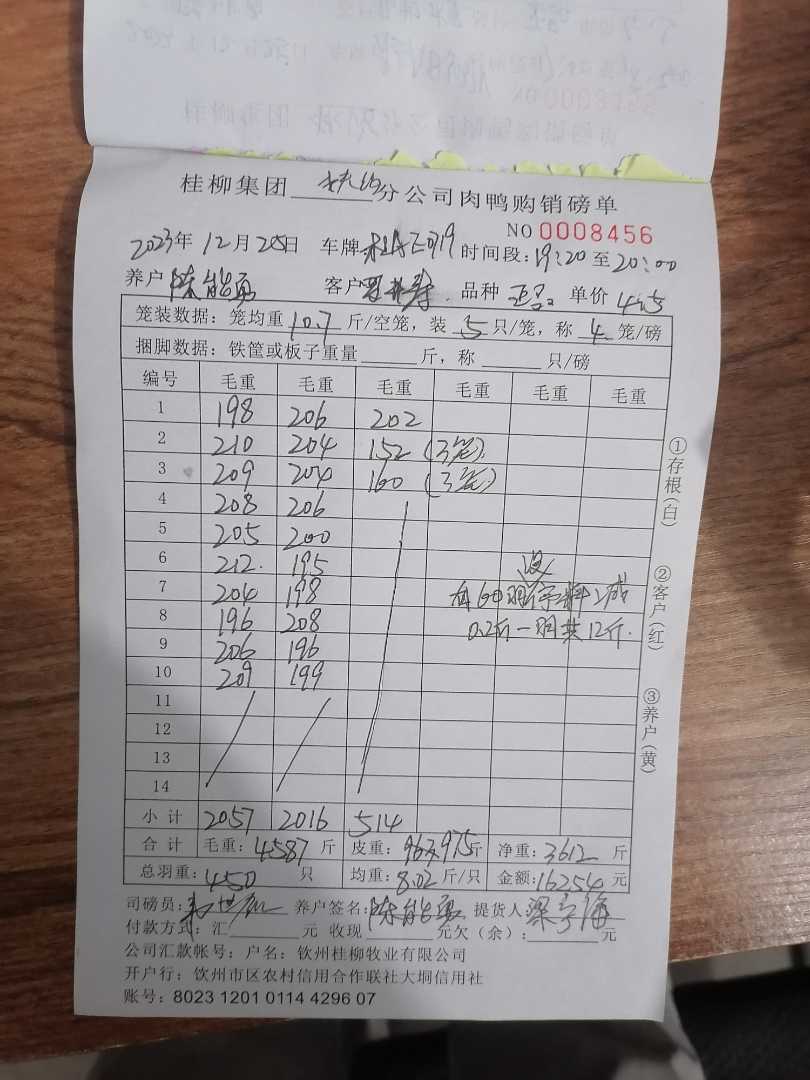 桂柳集团 分公司肉鸭购销磅单
NO 0008456
2023年12月25日 车牌 时间段:19:20至20:00
养户 陈能勇 客户 品种 单价 4.5
笼装数据:笼均重10.7斤/空笼,装5只/笼,称4笼/磅
捆脚数据:铁筐或板子重量______斤,称______只/磅
编号 毛重 毛重 毛重 毛重 毛重 毛重
1 198 206 202
2 210 204 152 (3笼)
3 209 204 160 (3笼)
4 208 206
5 205 200
6 212. 195
7 204 198
8 196 208
9 206 196
10 209 199
11
12
13
14
0.2斤一 共12斤.
小计 2057 2016 514
合计 毛重:4587斤 皮重: 975斤 净重:3612斤
总羽重:450只 均重:8.02斤/只 金额:16254元
司磅员: 养户签名:陈能勇 提货人
付款方式:汇______元 收现______元欠(余):______元
公司汇款帐号:户名:钦州桂柳牧业有限公司
开户行:钦州市区农村信用合作联社大垌信用社
账号:8023 1201 0114 4296 07
①存根(白)
②客户(红)
③养户(黄)